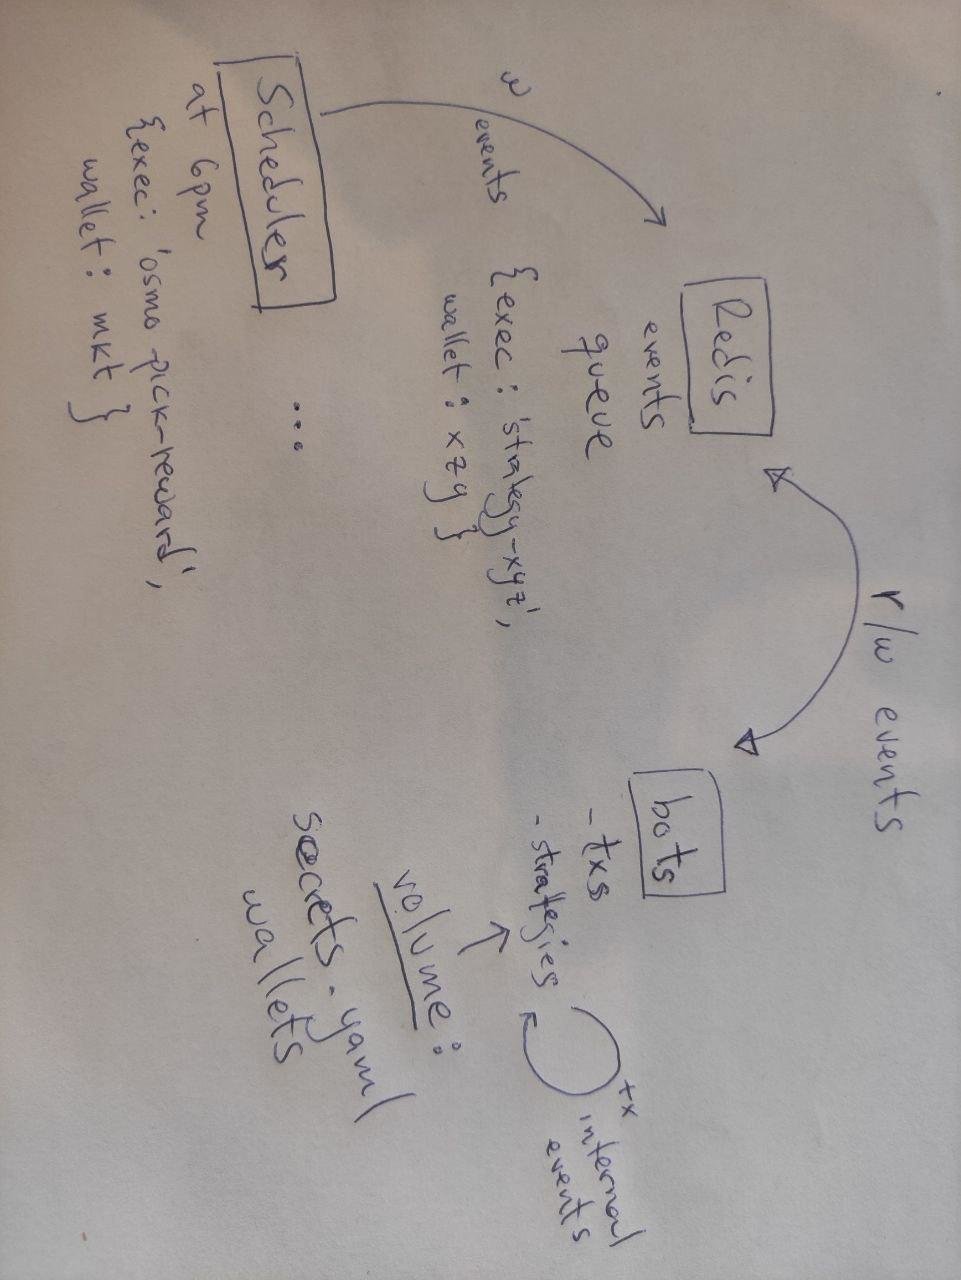 Scheduler
at 6pm
{exec: 'osmo-pick-reward',
wallet: mkt }
...
w
events
Redis
events
queue
{exec: 'strategy-xyz',
wallet: xzy }
r/w events
bots
- txs
- strategies
tx
internal
events
volume:
secrets.yaml
wallets